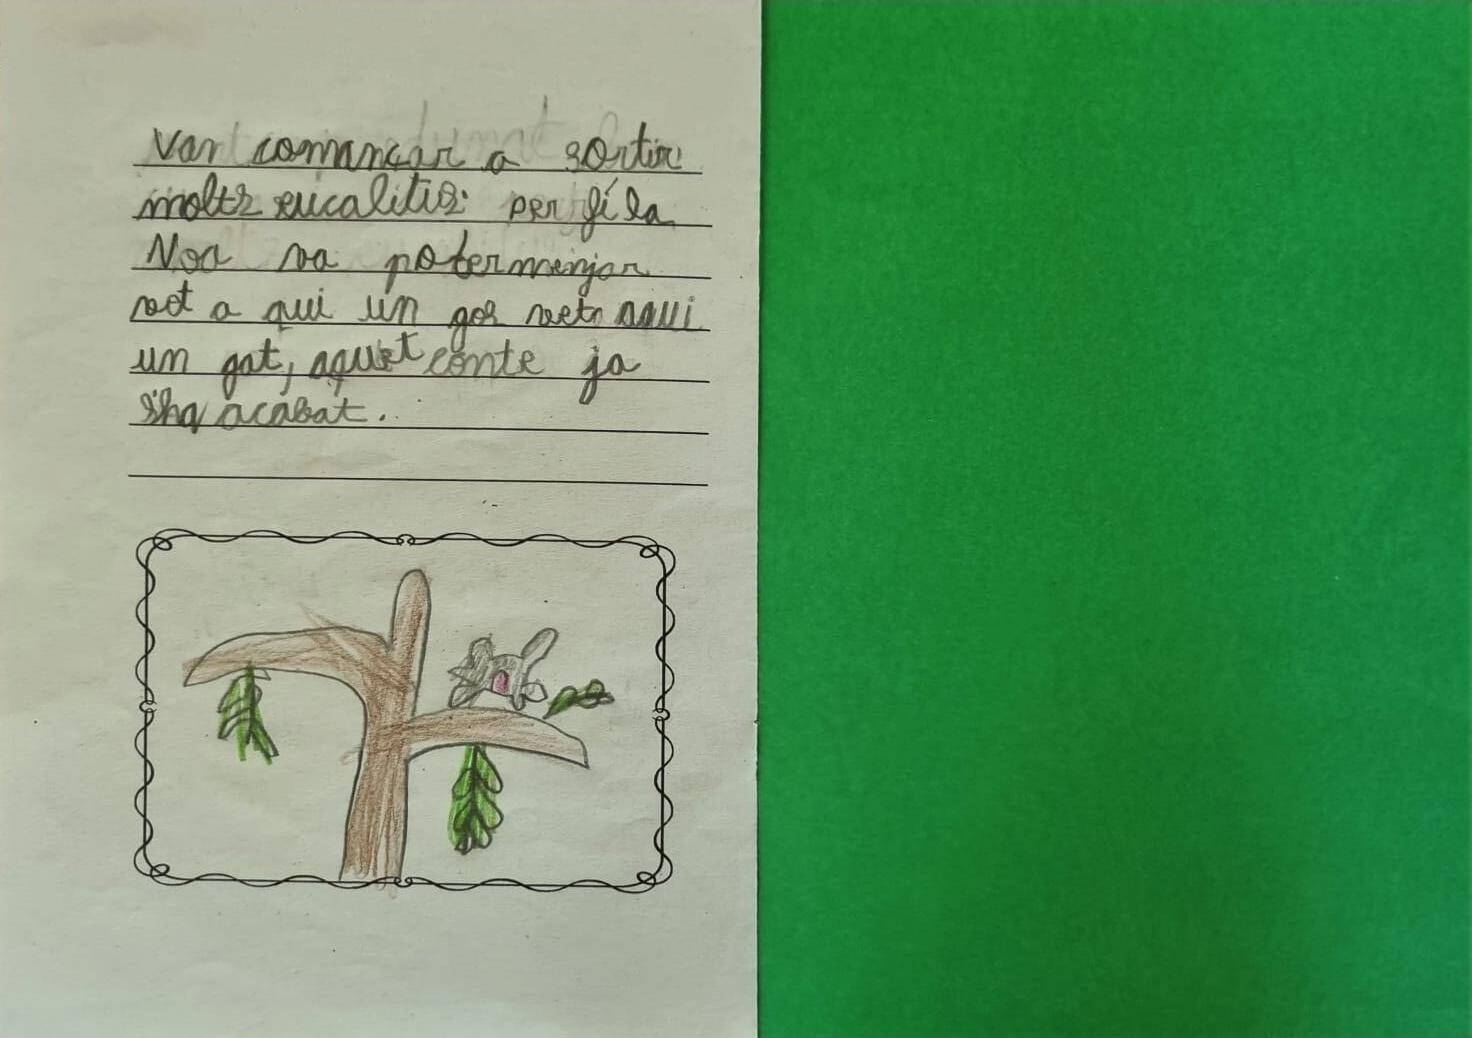 Van comançar a sortir
molts eucalitis: per fí la
Noa va poter menjar
vet a qui un gos vet aqui
un gat, aquet conte ja
s'ha acabat.